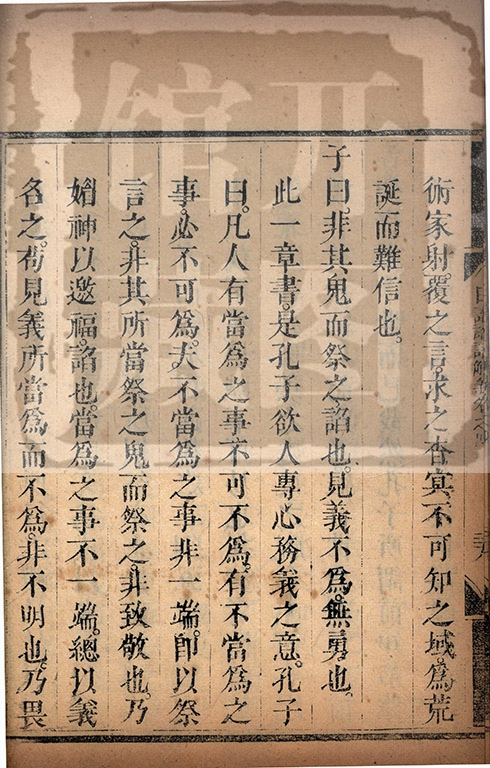 術家射覆之言。求之杳冥不可知之域。爲荒
誕而難信也。
子曰。非其鬼而祭之。諂也。見義不爲。無勇也。
此一章書。是孔子欲人專心務義之意。孔子
曰。凡人有當爲之事。不可不爲。有不當爲之
事。必不可爲。夫不當爲之事非一端。即以祭
言之。非其所當祭之鬼而祭之。非致敬也。乃
媚神以邀福。諂也。當爲之事不一端。總以義
名之。苟見義所當爲而不爲。非不明也。乃畏